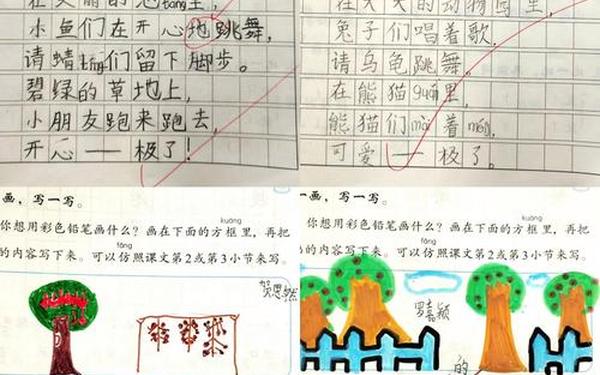 在美丽的池táng里，
小鱼们在开心地跳舞，
请蜻tíng们留下脚步。
碧绿的草地上，
小朋友跑来跑去，
开心——极了！
在大大的动物园里，
兔子们唱着歌，
请乌龟跳舞。
在熊猫guǎn里，
熊猫们
着
可爱——极了。
画，写一写。
kuàng
你想用彩色铅笔画什么？画在下面的方框里，再把
fǎng
的内容写下来。可以仿照课文第2或第3小节来写。
贺思然
一画，写一写。
kuàng
你想用彩色铅笔画什么？画在下面的方框里，再把
fǎng
的内容写下来。可以仿照课文第2或第3小节来写。
罗嘉颖
的